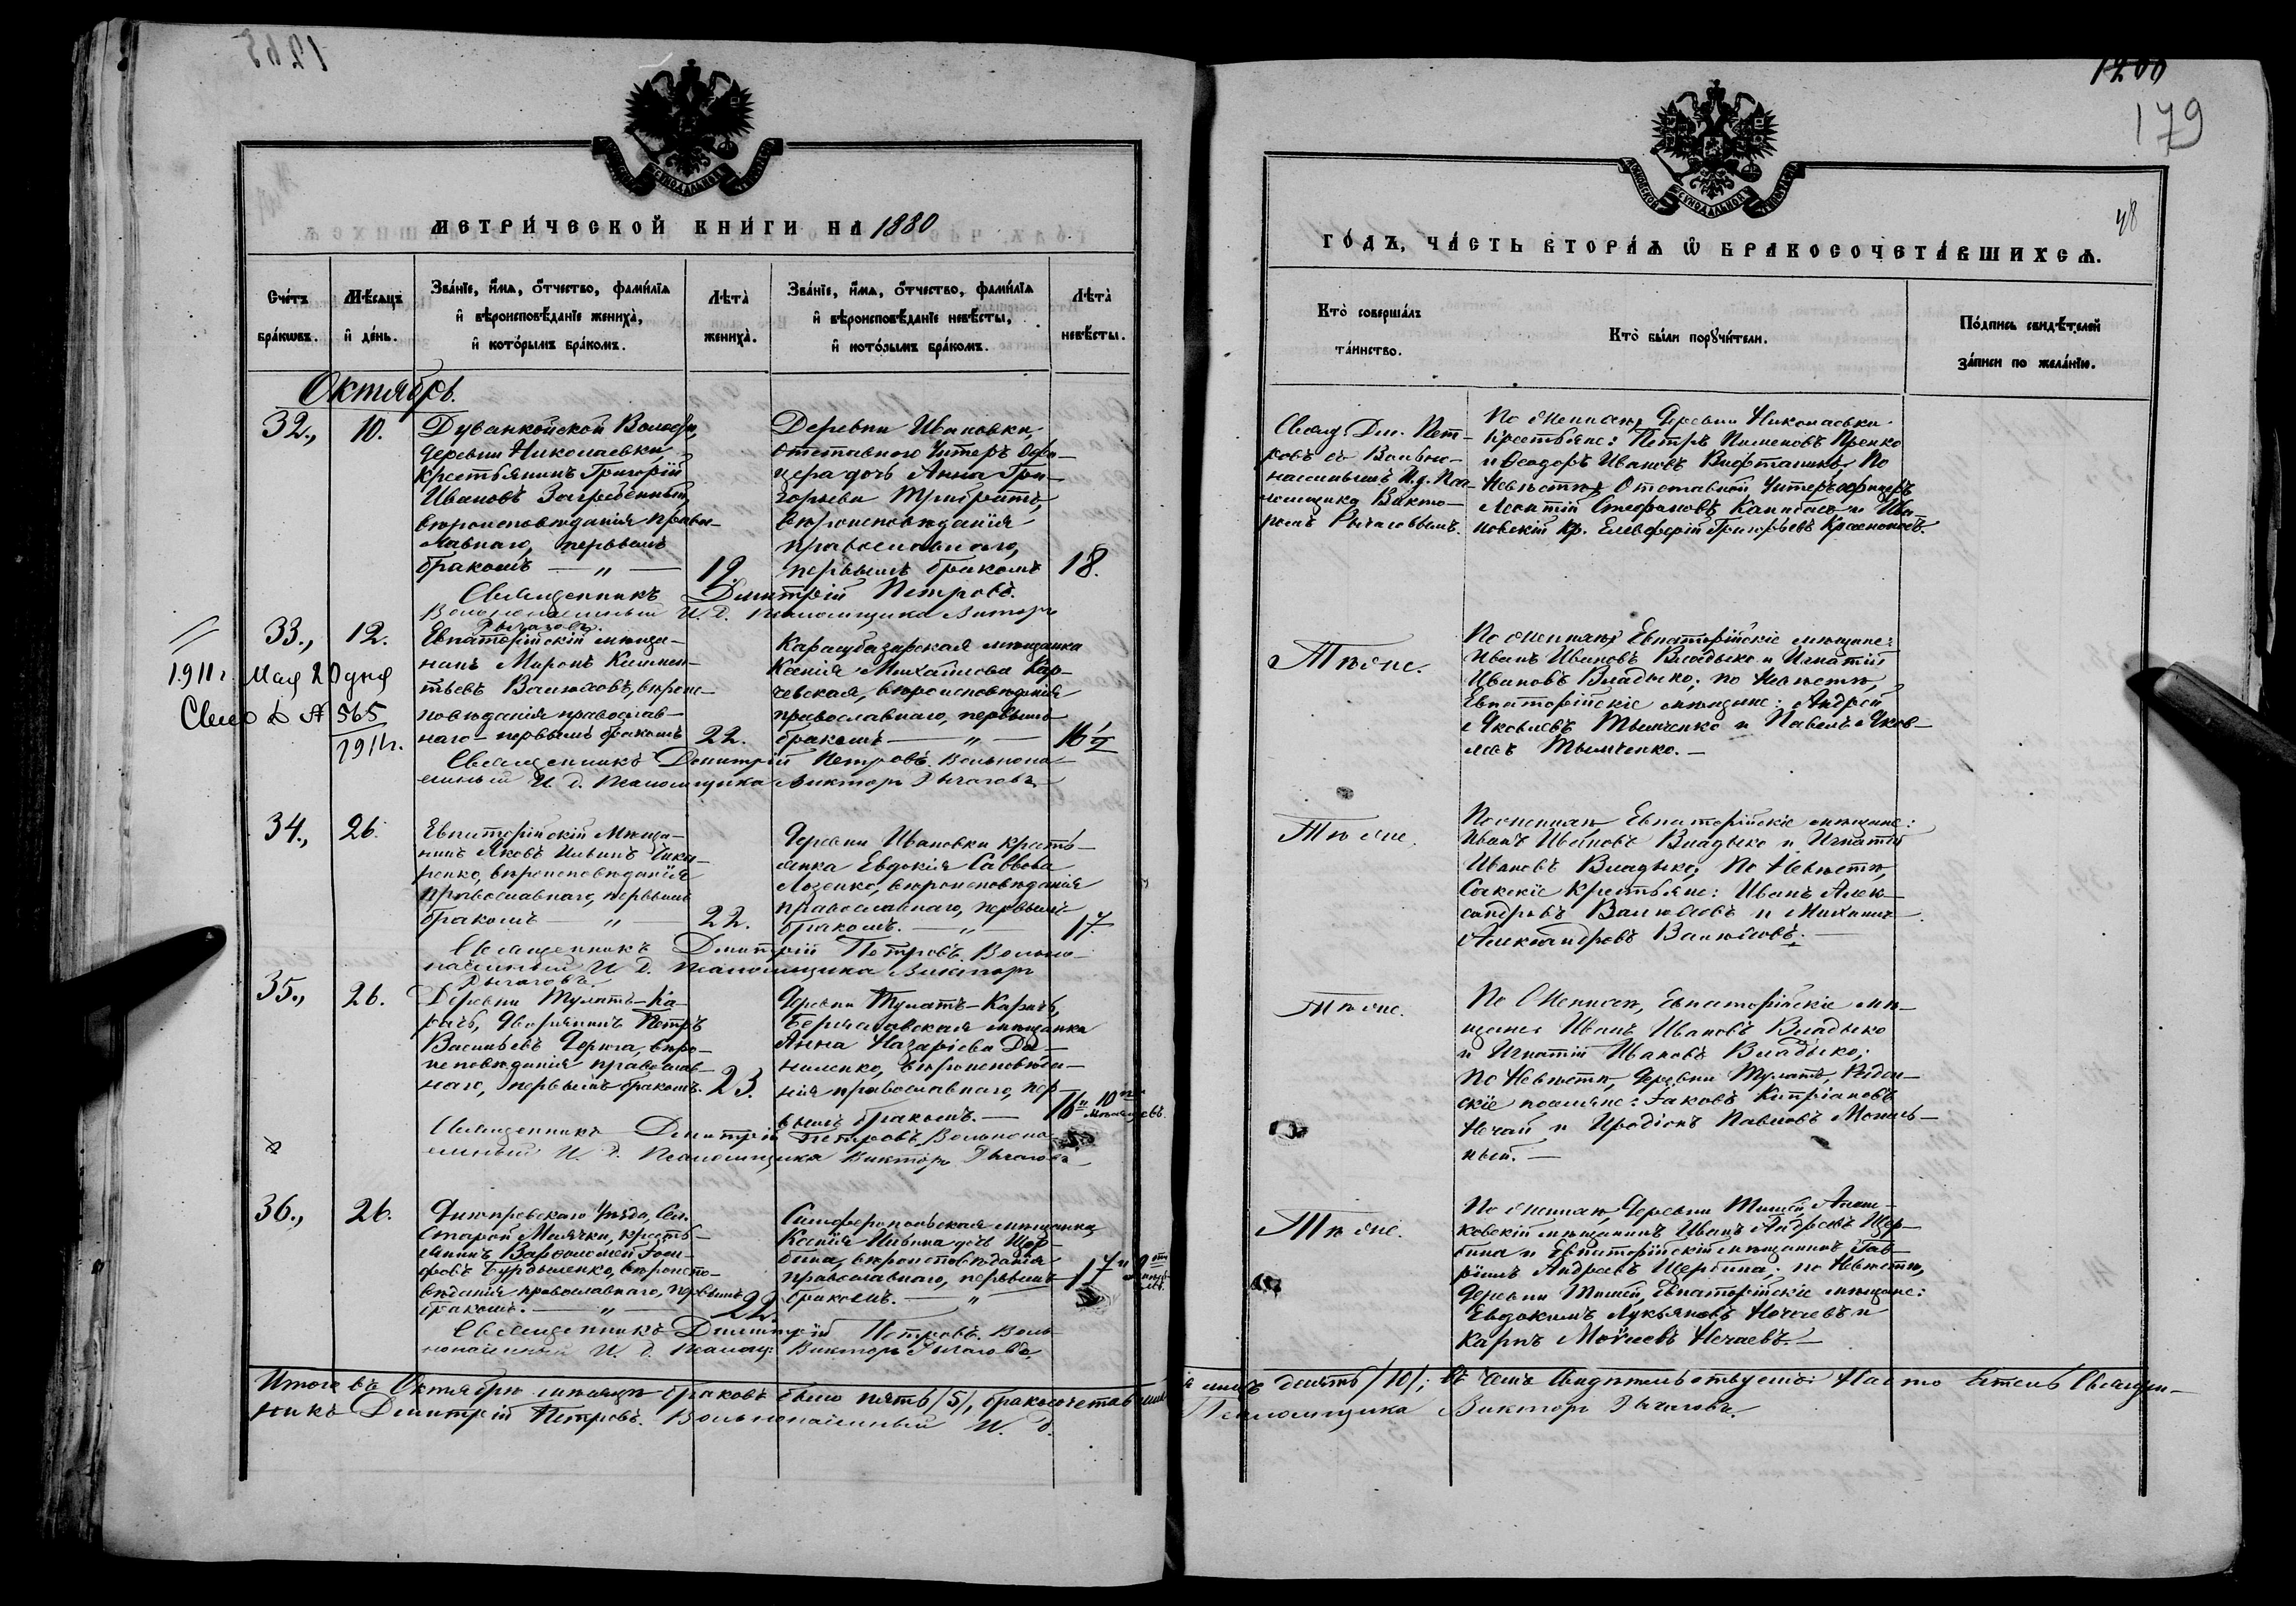 1265
МЕТРИ́ЧЕСКОЙ КНИ́ГИ НА 1880
Сче́тъ бра́кωвъ.
Мѣ́сяцъ и҆ де́нь.
Зва́нїе, и҆́мя, ѻ҆́тчество, фами́лїя и҆ вѣроисповѣ́данїе жениха̀, и҆ кото́рымъ бра́комъ.
Лѣта̀ жениха̀.
Зва́нїе, и҆́мя, ѻ҆́тчество, фами́лїя и҆ вѣроисповѣ́данїе невѣ́сты, и҆ кото́рымъ бра́комъ.
Лѣта̀ невѣ́сты.
Октябрь.
32.,
10.
Дуванкойской Волости,
деревни Николаевки,
крестьянинъ Григорій
Ивановъ
вѣроисповѣданія право-
славнаго, первымъ
бракомъ — „ —
19.
Деревни Ивановки,
отставного Унтеръ Офи-
цера дочь Анна Гри-
горьева
вѣроисповѣданія
православнаго,
первымъ бракомъ
18.
Священникъ Димитрій Петровъ.
Вольнонаемный И. Д. Псаломщика Викторъ
Рычаговъ.
33.,
12.
Евпаторійскій мѣща-
нинъ Миронъ Климен-
тьевъ вѣроис-
повѣданія православ-
наго — первымъ бракомъ
22.
Карасубазарская мѣщанка
Ксенія Михайлова Кар-
чевская, вѣроисповѣданія
православнаго, первымъ
бракомъ — „ —
16 1/2
1911 г. Мая 20 дня
565
1911 г.
Священникъ Димитрій Петровъ. Вольнона-
емный И. Д. Псаломщика Викторъ Рычаговъ.
34.,
26.
Евпаторійскій Мѣща-
нинъ Яковъ Ильинъ Чика-
ренко, вѣроисповѣданія
православнаго, первымъ
бракомъ — „ —
22.
Деревни Ивановки кресть-
янка Евдокія Саввова
Лозенко, вѣроисповѣданія
православнаго, первымъ
бракомъ. — „ —
17.
Священникъ Димитрій Петровъ. Вольно-
наемный И. Д. Псаломщика Викторъ
Рычаговъ.
35.,
26.
Деревни Тулатъ-Ка-
рачъ, Дворянинъ Петръ
Васильевъ Дерюга, вѣро-
исповѣданія православ-
наго, первымъ бракомъ.
23.
Деревни Тулатъ-Карачъ,
Бериславская мѣщанка
Анна Назаріева Да-
ниленко, вѣроисповѣда-
нія православнаго, пер-
вымъ бракомъ. —
16 и 10 мѣсяцевъ.
Священникъ Димитрій Петровъ. Вольнона-
емный И. Д. Псаломщика Викторъ Рычаговъ
36.,
26.
Днѣпровскаго Уѣзда, Сел.
Старой Маячки, кресть-
янинъ Варфоломей
Бурдыленко, вѣроиспо-
вѣданія православнаго, первымъ
бракомъ. — „ —
22.
Симферопольская мѣщанка
Ксенія Ильина дочь Щер-
бина, вѣроисповѣданія
православнаго, первымъ
бракомъ. — „
17 и 9
Священникъ Димитрій Петровъ. Воль-
нонаемный И. Д. Псалом. Викторъ Рычаговъ.
Итого въ Октябрѣ мѣсяцѣ браковъ было пять /5/, бракосочетав
никъ Димитрій Петровъ. Вольнонаемный И. Д.
1266
179
48
ГО́ДЪ, ЧА́СТЬ ВТОРА́Я Ѡ҆ БРАКОСОЧЕТА́ВШИХСЯ.
Кто̀ соверша́лъ та́инство.
Кто̀ бы́ли порꙋчи́тели.
По́дпись свидѣ́телей за́писи по жела́нїю.
Свящ. Дим. Пет-
ровъ съ Вольно-
наемнымъ И. д. Пса-
ломщика Викто-
ромъ Рычаговымъ.
По женихѣ, Деревни Николаевки
крестьяне: Петръ Пименовъ
и Ѳеодоръ Ивановъ По
Невѣстѣ, Отставной Унтеръ офицеръ
Леонтій Стефановъ и Ива-
новскій кр. Елевферій Григорьевъ
Тѣ же.
По женихѣ, Евпаторійскіе мѣщане:
Иванъ Ивановъ Владыко и Игнатій
Ивановъ Владыко; по Невѣстѣ,
Евпаторійскіе мѣщане: Андрей
Яковлевъ Тымченко и Павелъ Яков-
левъ Тымченко. —
Тѣ же.
По женихѣ Евпаторійскіе мѣщане:
Иванъ Ивановъ Владыко и Игнатій
Ивановъ Владыко; По Невѣстѣ,
Сакскіе крестьяне: Иванъ Алек-
сандровъ и Михаилъ
Александровъ
Тѣ же.
По Женихѣ, Евпаторійскіе мѣ-
щане: Иванъ Ивановъ Владыко
и Игнатій Ивановъ Владыко;
По Невѣстѣ, Деревни Тулатъ,
скіе поселяне: Іаковъ Кипріановъ
Нечай и Иродіонъ Павловъ
ный. —
Тѣ же.
По женихѣ, Деревни
ковскій мѣщанинъ Иванъ Андреевъ Щер-
бина и Евпаторійскій мѣщанинъ Гав-
ріилъ Андреевъ Щербина; по Невѣстѣ,
Деревни Евпаторійскіе мѣщане:
Евдокимъ Лукьяновъ Нечаевъ и
Карпъ Моисеевъ Нечаевъ. —
десять /10/; въ чемъ свидѣтельствуетъ: Настоятель Священ-
Псаломщика Викторъ Рычаговъ.